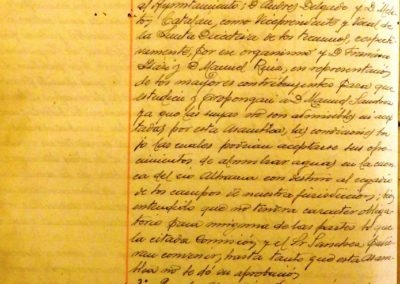 el Ayuntamiento; D. Andres Delgado y D.
Catalan, como Vicepresidente y Vocal de
la Junta Directiva de los
mente, por ese organismo y D. Francisco
Diaz y D. Manuel Ruiz, en representacion
de los mayores contribuyentes para que
estudien y propongan a D. Manuel Sandoca
ya que las suyas no son admisibles ni acep
tadas por esta Asamblea, las condiciones ba
jo las cuales podrian aceptarse sus ofre
cimientos de alumbrar aguas en la cuen
ca del rio Alhama con destino al regadio
de los campos de nuestra jurisdiccion;
entendido que no tendra caracter obliga
torio para ninguna de las partes lo que
la citada Comision y el Sr Sandoca
convenir, hasta tanto que esta Asam
blea no le dé su aprobacion